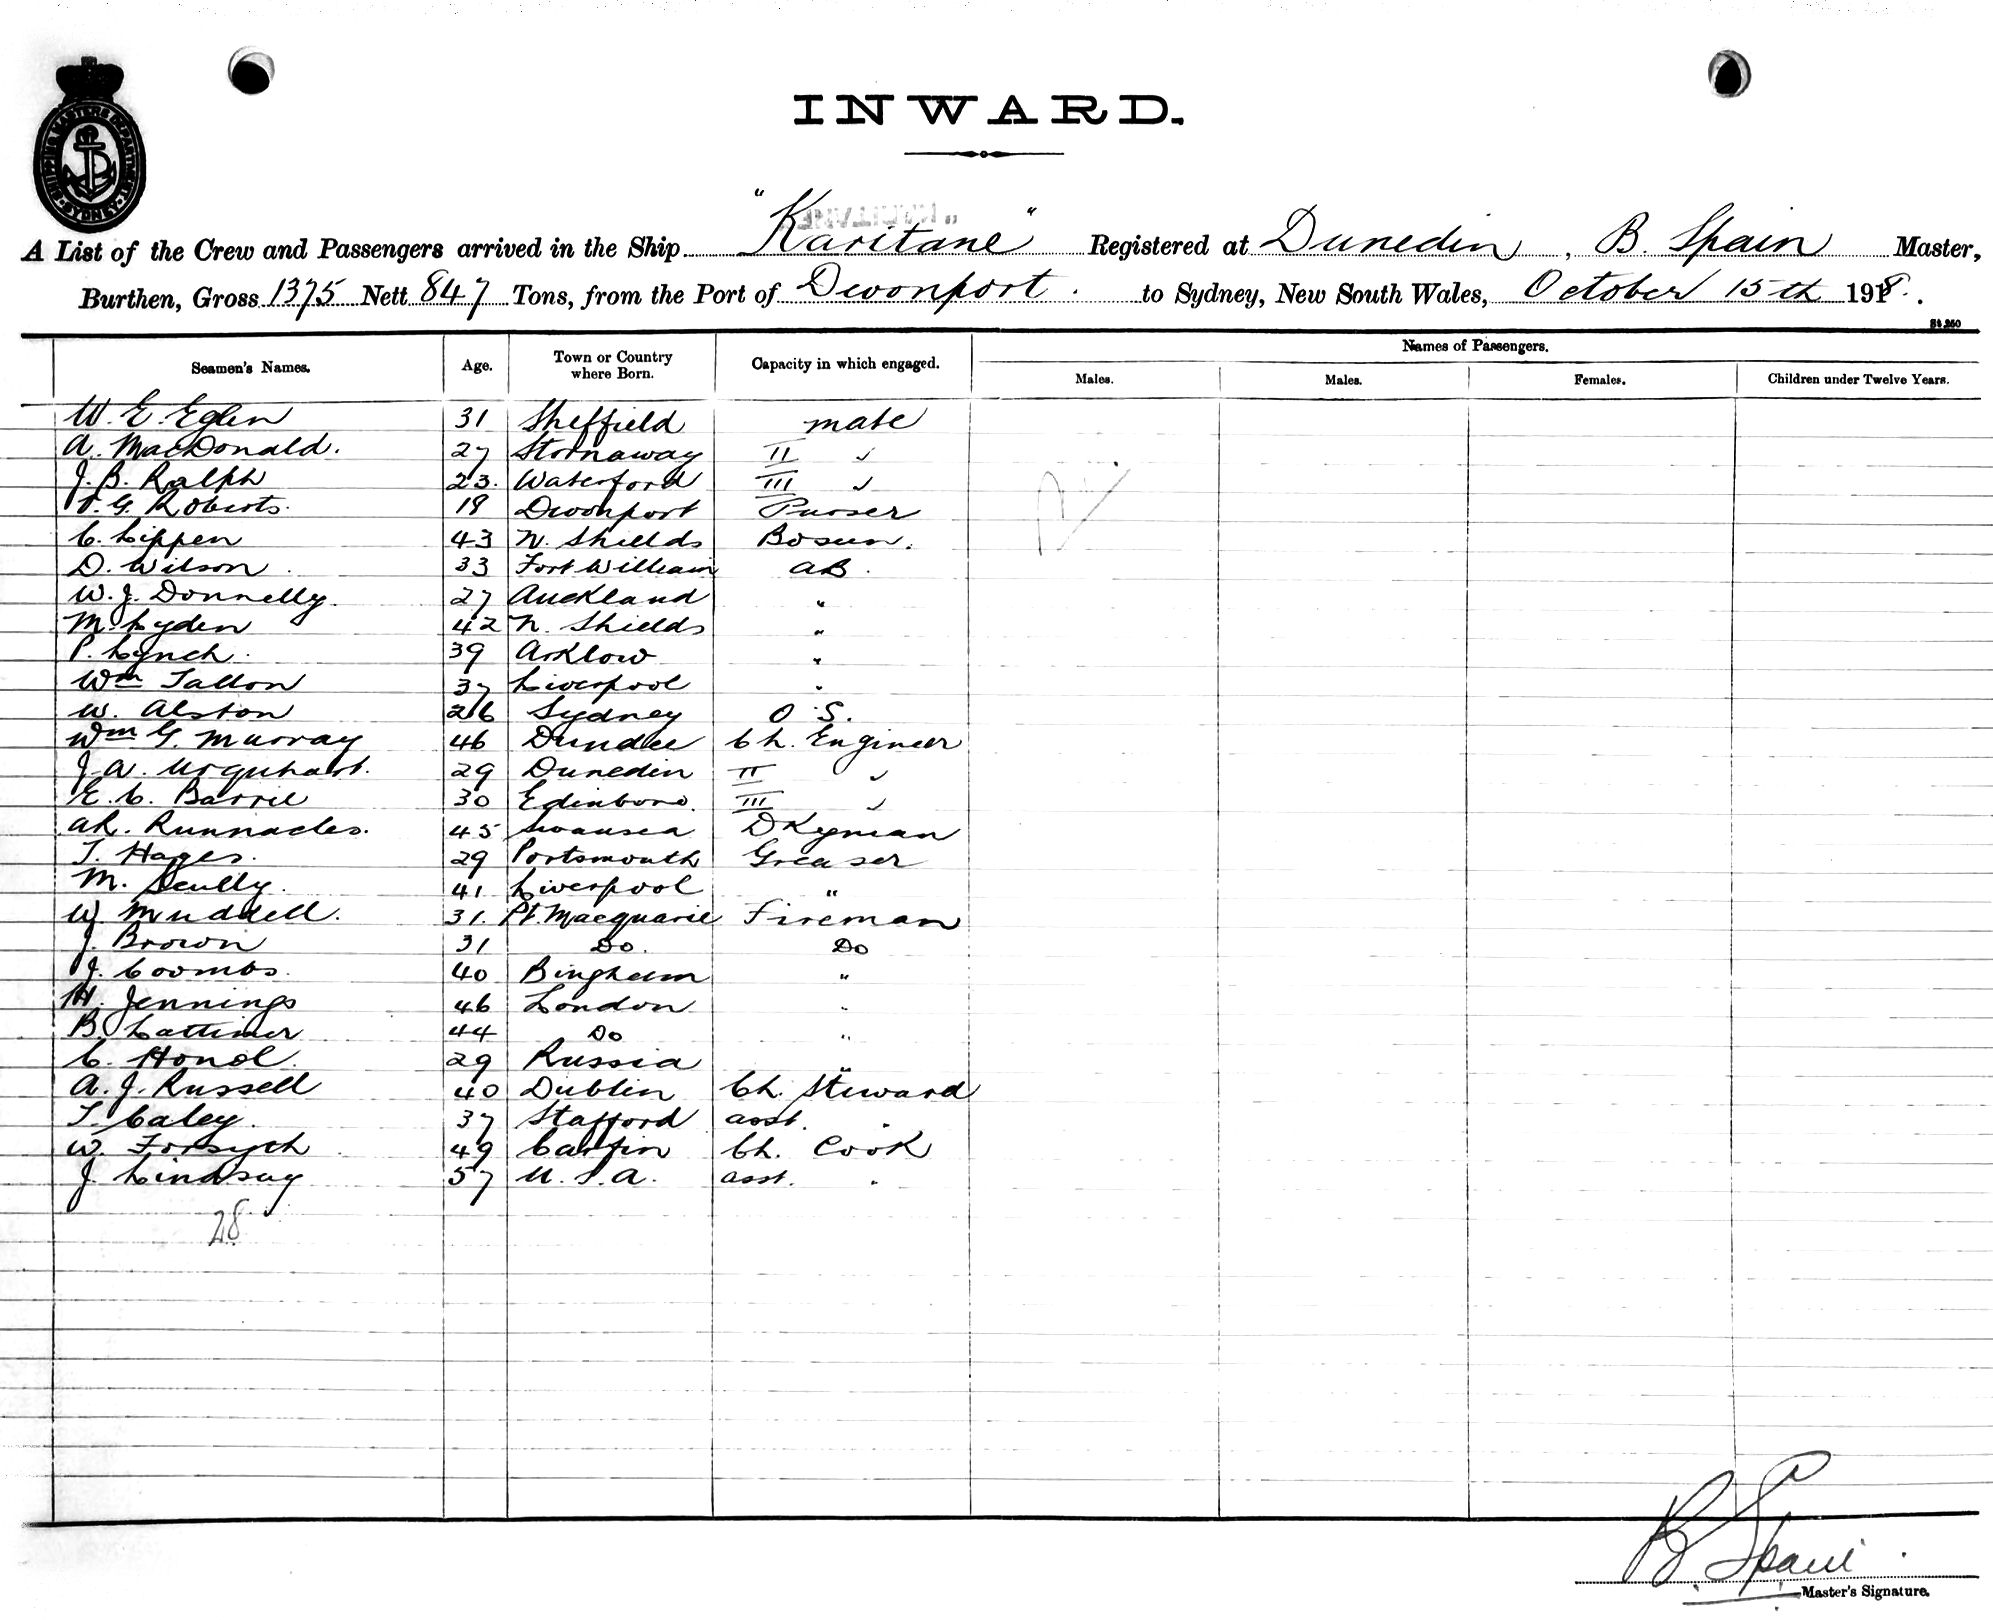 SHIPPING MASTERS DEPARTMENT SYDNEY
INWARD.
A List of the Crew and Passengers arrived in the Ship "Karitane" Registered at Dunedin, B. Spain Master,
Burthen, Gross 1375 Nett 847 Tons, from the Port of Devonport. to Sydney, New South Wales, October 15th 1918.
Seamen's Names. Age. Town or Country where Born. Capacity in which engaged. Names of Passengers.
Males. Males. Females. Children under Twelve Years.
W. E. Eglen 31 Sheffield mate
A. MacDonald. 27 Stornaway II "
J. B. Ralph 23. Waterford III "
G. Roberts. 19 Devonport Purser
C. Lippen 43 N. Shields Bosun.
D. Wilson. 33 Fort William AB.
W. J. Donnelly. 27 Auckland "
M. Lyden 42 N. Shields "
P. Lynch. 39 Arklow "
Wm Tallon 37 Liverpool "
W. Alston 26 Sydney O.S.
Wm G. Murray 46 Dundee Ch. Engineer
J. A. Urquhart. 29 Dunedin II "
E. C. Barrie 30 Edinboro. III "
Runnacles. 45 Swansea DKeyman
T. Hages. 29 Portsmouth Greaser
M. Scully. 41. Liverpool "
W. Muddell. 31. Pt. Macquarie Fireman
J. Brown 31 Do. Do
J. Coombs. 40 Bingham "
H. Jennings 46 London "
B. Lattimer 44 Do "
C. Hond. 29 Russia "
A. J. Russell 40 Dublin Ch. Steward
T. Caley. 37 Stafford asst. "
W. Forsyth 49 Carfin Ch. Cook
J. Lindsay 57 U.S.A. asst. "
28
B. Spain.
Master's Signature.